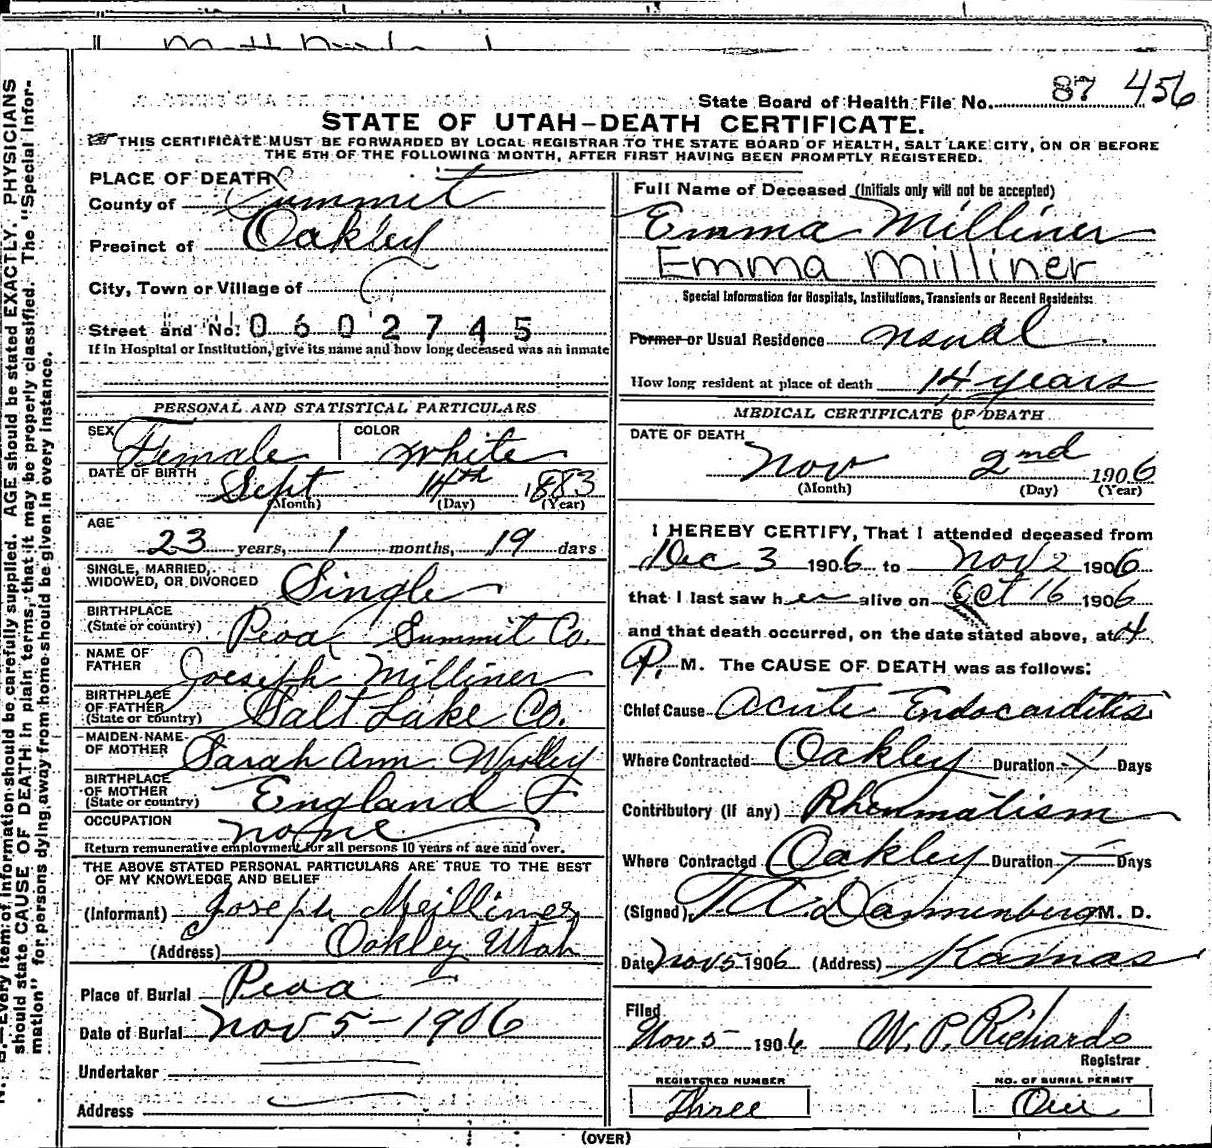 State Board of Health File No. 87 456
STATE OF UTAH-DEATH CERTIFICATE.
THIS CERTIFICATE MUST BE FORWARDED BY LOCAL REGISTRAR TO THE STATE BOARD OF HEALTH, SALT LAKE CITY, ON OR BEFORE
THE 5TH OF THE FOLLOWING MONTH, AFTER FIRST HAVING BEEN PROMPTLY REGISTERED.
PLACE OF DEATH
County of Summit
Precinct of Oakley
City, Town or Village of
Street and No. 0602745
If in Hospital or Institution, give its name and how long deceased was an inmate
PERSONAL AND STATISTICAL PARTICULARS
SEX Female COLOR White
DATE OF BIRTH Sept 14th 1883
(Month) (Day) (Year)
AGE 23 years, 1 months, 19 days
SINGLE, MARRIED,
WIDOWED, OR DIVORCED Single
BIRTHPLACE
(State or country) Peoa Summit Co.
NAME OF
FATHER Joesiph Milliner
BIRTHPLACE
OF FATHER
(State or country) Salt Lake Co.
MAIDEN NAME
OF MOTHER Sarah Ann
BIRTHPLACE
OF MOTHER
(State or country) England
OCCUPATION none
Return remunerative employment for all persons 10 years of age and over.
THE ABOVE STATED PERSONAL PARTICULARS ARE TRUE TO THE BEST
OF MY KNOWLEDGE AND BELIEF
(Informant) Joseph Meilliner
(Address) Oakley Utah
Place of Burial Peoa
Date of Burial Nov 5-1906
Undertaker
Address
Full Name of Deceased (Initials only will not be accepted)
Emma Milliner
Emma Milliner
Special Information for Hospitals, Institutions, Transients or Recent Residents:
Former or Usual Residence usual
How long resident at place of death 14 years
MEDICAL CERTIFICATE OF DEATH
DATE OF DEATH
Nov 2nd 1906
(Month) (Day) (Year)
I HEREBY CERTIFY, That I attended deceased from
Dec 3 1906 to Nov 2 1906
that I last saw her alive on Oct 16 1906
and that death occurred, on the date stated above, at 4
P. M. The CAUSE OF DEATH was as follows:
Chief Cause Acute Endocarditis
Where Contracted Oakley Duration Days
Contributory (if any) Rheumatism
Where Contracted Oakley Duration Days
(Signed) T. A. Dannenberg M. D.
Date Nov 5 1906 (Address) Kamas
Filed
Nov 5 1906 W. P. Richards
Registrar
REGISTERED NUMBER
Three
NO. OF BURIAL PERMIT
One
(OVER)
N. B.—Every item of information should be carefully supplied. AGE should be stated EXACTLY. PHYSICIANS
should state CAUSE OF DEATH in plain terms, that it may be properly classified. The "Special Infor-
mation" for persons dying away from home should be given in every instance.